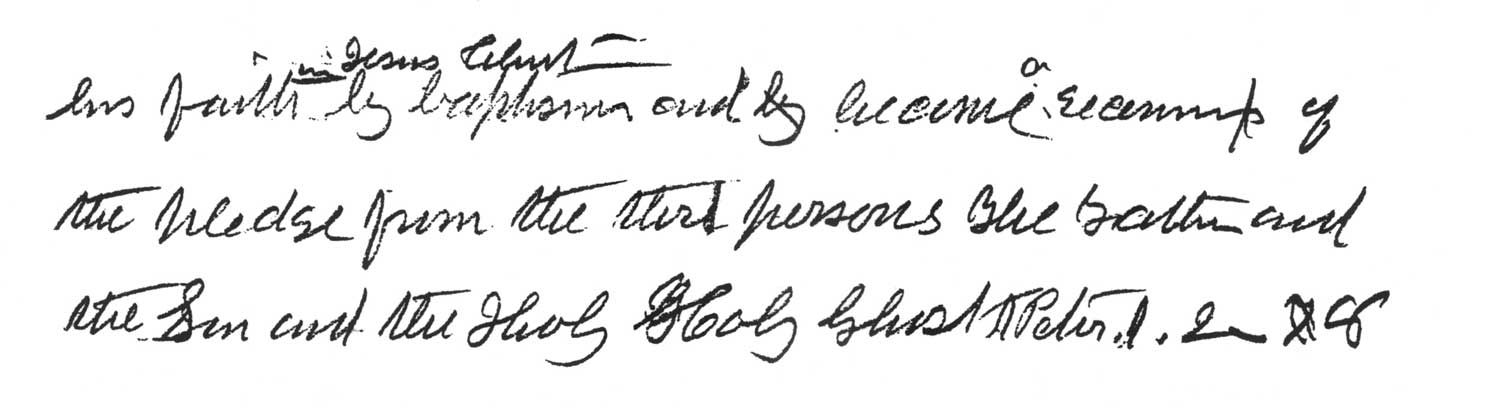 in Jesus Christ
his faith by baptism and by became a recenint of
the pledge from the third persons the Father and
the Son and the Holy Holy Ghost Peter. 1. 2